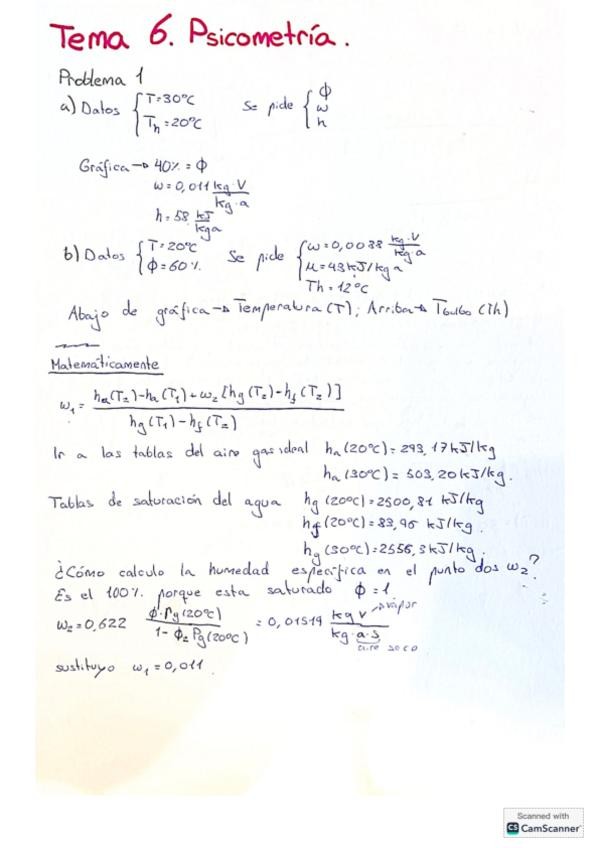 Tema 6. Psicometría.
Problema 1
a) Datos { T=30ºC Th=20ºC Se pide { ϕ w h
Gráfica → 40% = ϕ
w=0,011 kg·V / kg·a
h=58 kJ / kga
b) Datos { T=20ºC ϕ=60% Se pide { w=0,0088 kg·V / kg a
μ=43kJ/kg a
Th=12ºC
Abajo de gráfica → Temperatura (T); Arriba → Tbulbo (Th)
Matemáticamente
w₁ = ha(T₂)-ha(T₁)+w₂[hg(T₂)-hf(T₂)] / hg(T₁)-hf(T₂)
Ir a las tablas del aire gas ideal ha(20ºC)=293,17kJ/kg
ha(30ºC)=303,20kJ/kg.
Tablas de saturación del agua hg(20ºC)=2500,81 kJ/kg
hf(20ºC)=83,96 kJ/kg.
hg(30ºC)=2556,3kJ/kg.
¿Cómo calculo la humedad específica en el punto dos w₂?
Es el 100% porque esta saturado ϕ=1
w₂=0,622 ϕ·Pg(20ºC) / 1-ϕ₂ Pg(20ºC) = 0,01519 kg v → vapor / kg·a·s aire seco
sustituyo w₁=0,011.
Scanned with
CS CamScanner